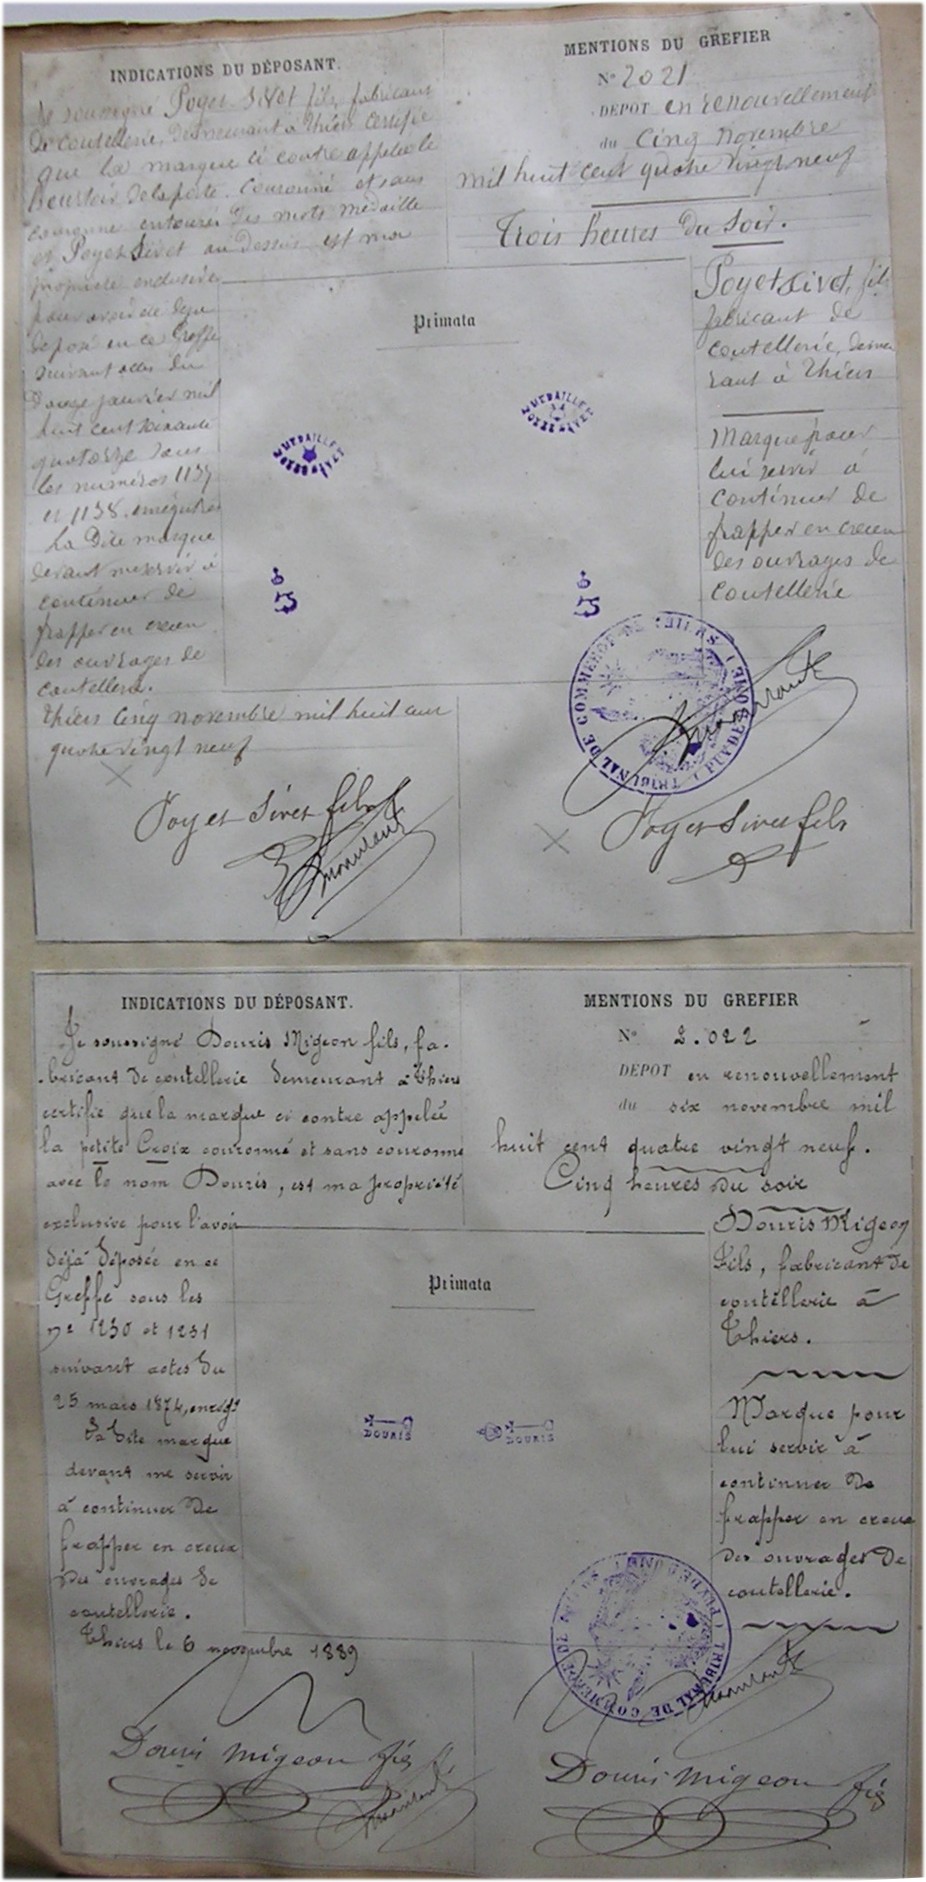 INDICATIONS DU DÉPOSANT.
Je soussigné Poyet Sivet fils, fabricant
de coutellerie, demeurant à Thiers certifie
que la marque ci contre appelée le
heurtoir de la porte couronné et sans
couronne entourée des mots médaille
et Poyet Sivet au dessus est ma
propriété exclusive
pour avoir été déjà
déposé en ce Greffe
suivant actes du
Douze janvier mil
huit cent soixante
quatorze sous
les numéros 1137
et 1138. enregistrés
La Dite marque
devant me servir à
continuer de
frapper en creux
des ouvrages de
coutellerie.
Thiers Cinq novembre mil huit cent
quatre vingt neuf
Poyet Sivet fils
MENTIONS DU GREFIER
N° 2021
DEPOT en renouvellement
du Cinq novembre
mil huit cent quatre vingt neuf
Trois heures du Soir.
Poyet Sivet, fils
fabricant de
coutellerie, demeu
rant à Thiers
Marque pour
lui servir à
continuer de
frapper en creux
des ouvrages de
coutellerie
Primata
MEDAILLE
POYET SIVET
MEDAILLE
POYET SIVET
TRIBUNAL DE COMMERCE DE THIERS
(PUY DE DOME)
Poyet Sivet fils
INDICATIONS DU DÉPOSANT.
Je soussigné Douris Migeon fils, fa-
-bricant de coutellerie demeurant à Thiers
certifie que la marque ci contre appelée
la petite Croix couronné et sans couronne
avec le nom Douris, est ma propriété
exclusive pour l'avoir
déjà déposée en ce
Greffe sous les
nos 1230 et 1231
suivant actes du
25 mars 1874, enregs
La Dite marque
devant me servir
à continuer de
frapper en creux
des ouvrages de
coutellerie.
Thiers le 6 novembre 1889
Douris Migeon fils
MENTIONS DU GREFIER
N° 2.022
DEPOT en renouvellement
du six novembre mil
huit cent quatre vingt neuf.
Cinq heures du soir
Douris Migeon
Fils, fabricant de
coutellerie à
Thiers.
Marque pour
lui servir à
continuer de
frapper en creux
des ouvrages de
coutellerie.
Primata
DOURIS
DOURIS
TRIBUNAL DE COMMERCE DE THIERS
(PUY DE DOME)
Douris Migeon fils